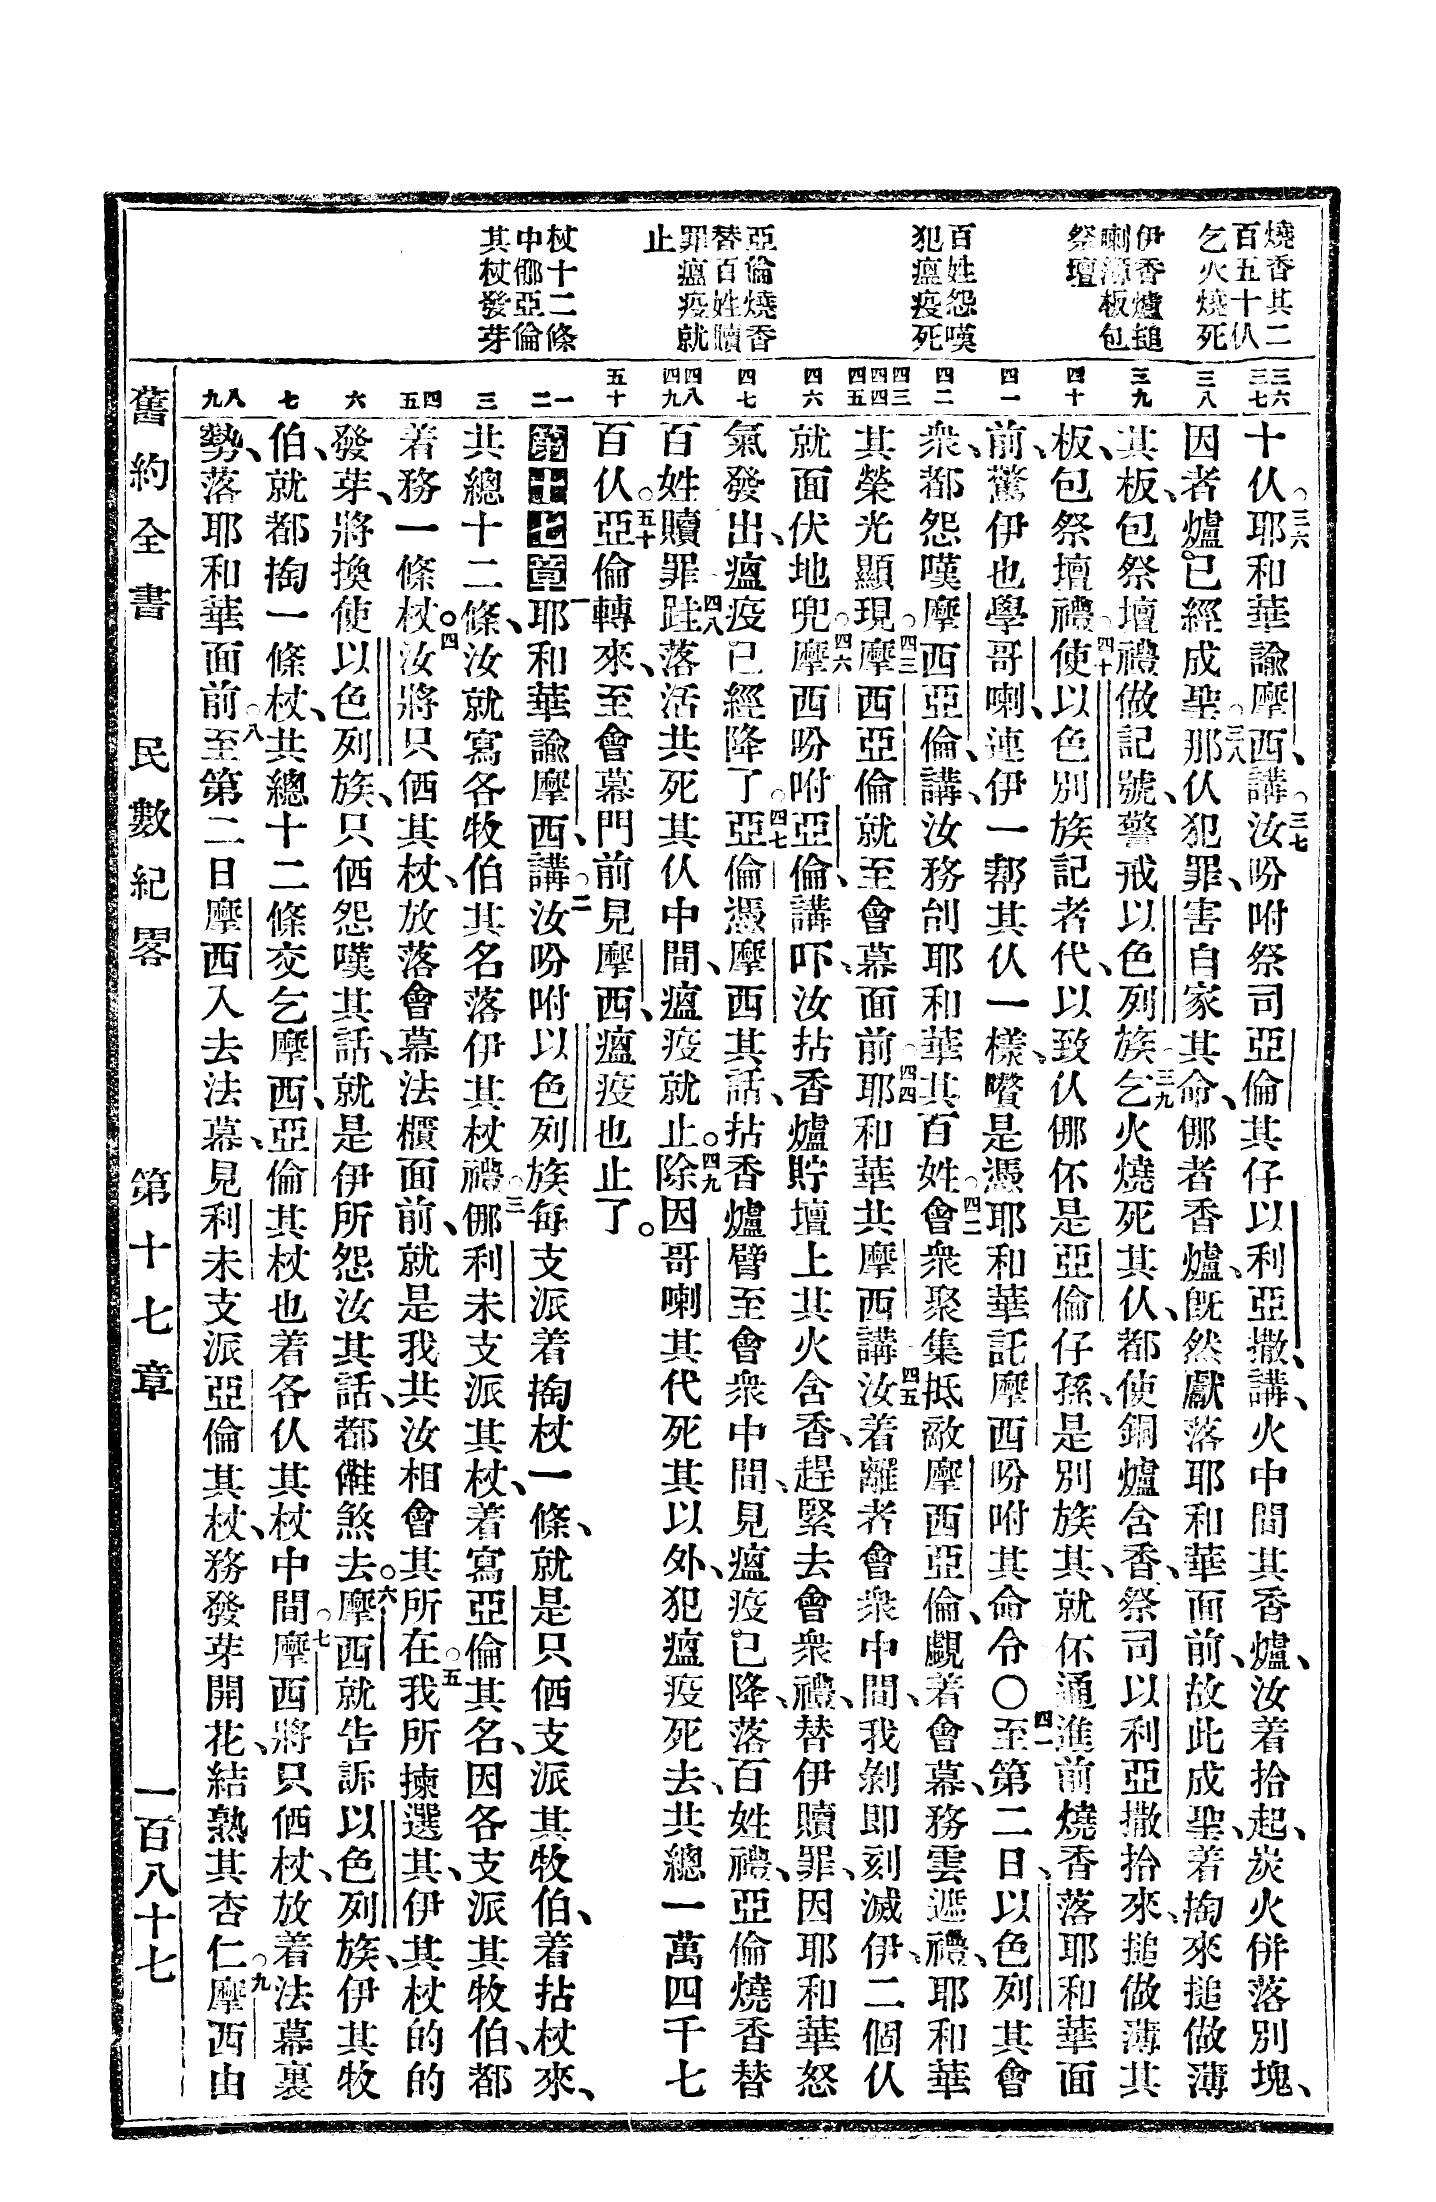 燒香其二
百五十仈
乞火燒死
伊香爐搥
喇源板包
祭壇
百姓怨嘆
犯瘟疫死
亞倫燒香
替百姓贖
罪瘟疫就
止
杖十二條
中㑚亞倫
其杖發芽
三六
三七
三八
三九
四十
四一
四二
四三
四四
四五
四六
四七
四八
四九
五十
一
二
三
四
五
六
七
八
九
十仈。三六耶和華諭摩西、講。三七汝吩咐祭司亞倫其仔以利亞撒、講、火中間其香爐、汝着拾起、炭火併落別塊、
因者爐已經成聖。三八那仈犯罪、害自家其命、㑚者香爐、旣然獻落耶和華面前、故此成聖、着掏來搥做薄
其板、包祭壇禮做記號、警戒以色列族。三九乞火燒死其仈、都使銅爐含香、祭司以利亞撒拾來、搥做薄其
板、包祭壇禮。四十使以色列族記者代、以致仈㑚伓是亞倫仔孫、是別族其、就伓通進前燒香落耶和華面
前、驚伊也學哥喇、連伊一幫其仈一樣、囋是憑耶和華託摩西吩咐其命令○四一至第二日、以色列其會
衆、都怨嘆摩西亞倫、講、汝務刣耶和華其百姓。四二會衆聚集抵敵摩西亞倫、覷着會幕、務雲遮禮、耶和華
其榮光顯現。四三摩西亞倫就至會幕面前。四四耶和華共摩西講。四五汝着離者會衆中間、我剝卽刻滅伊二個仈
就面伏地兜。四六摩西吩咐亞倫、講、吓、汝拈香爐貯壇上其火含香、趕緊去會衆禮、替伊贖罪、因耶和華怒
氣發出、瘟疫已經降了。四七亞倫憑摩西其話、拈香爐躄至會衆中間、見瘟疫已降落百姓禮、亞倫燒香替
百姓贖罪。四八跓落活共死其仈中間、瘟疫就止。四九除因哥喇其代死其以外、犯瘟疫死去、共總一萬四千七
百仈。五十亞倫轉來、至會幕門前見摩西、瘟疫也止了。
第十七章一耶和華諭摩西、講。二汝吩咐以色列族每支派着掏杖一條、就是只㑚支派其牧伯、着拈杖來、
共總十二條、汝就寫各牧伯其名落伊其杖禮。三㑚利未支派其杖、着寫亞倫其名、因各支派其牧伯、都
着務一條杖。四汝將只㑚其杖、放落會幕法櫃面前、就是我共汝相會其所在。五我所揀選其、伊其杖的的
發芽、將換使以色列族、只㑚怨嘆其話、就是伊所怨汝其話、都𣍐煞去。六摩西就告訴以色列族、伊其牧
伯、就都掏一條杖、共總十二條、交乞摩西、亞倫其杖也着各仈其杖中間。七摩西將只㑚杖、放着法幕裏
勢、落耶和華面前。八至第二日摩西入去法幕、見利未支派亞倫其杖、務發芽開花、結熟其杏仁。九摩西由
舊約全書　民數紀畧　第十七章　一百八十七